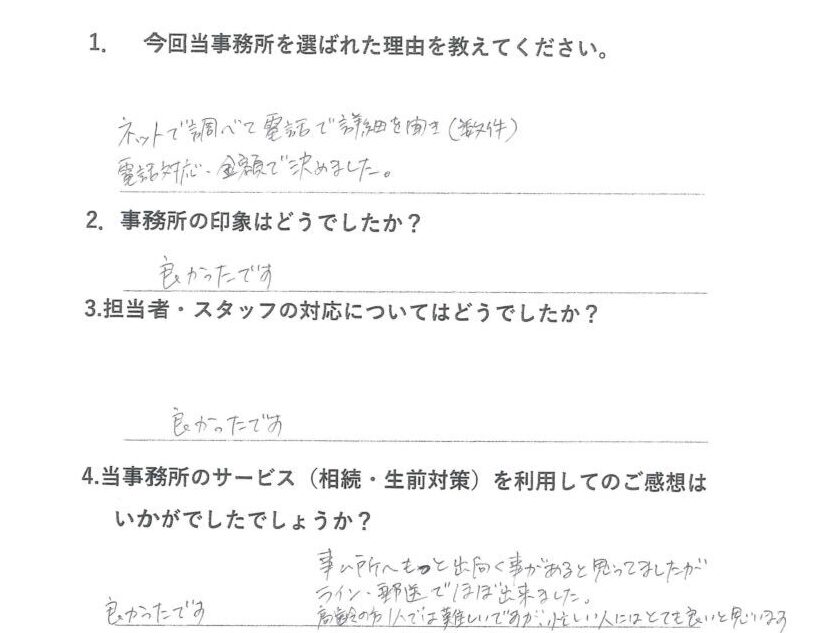 1. 今回当事務所を選ばれた理由を教えてください。
ネットで調べて電話で詳細を聞き(数件)
電話対応・金額で決めました。
2. 事務所の印象はどうでしたか?
良かったです
3.担当者・スタッフの対応についてはどうでしたか?
良かったです
4.当事務所のサービス(相続・生前対策)を利用してのご感想は
いかがでしたでしょうか?
事ム所へもっと出向く事があると思ってましたが
ライン・郵送でほぼ出来ました。
良かったです
高齢の方1人では難しいですが、忙しい人にはとても良いと思います